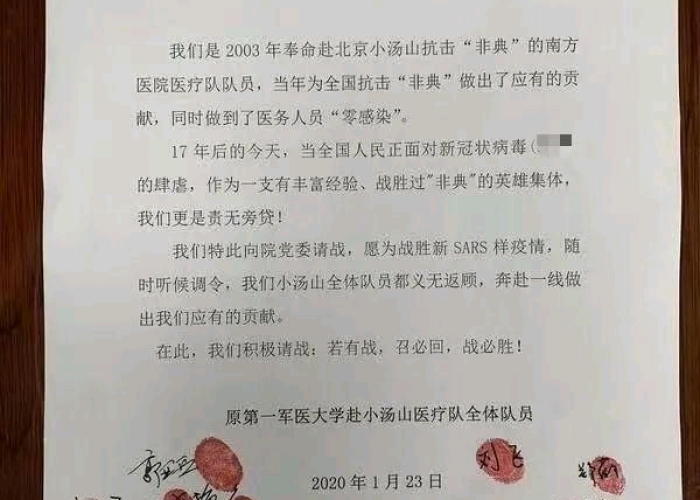 我们是 2003 年奉命赴北京小汤山抗击“非典”的南方
医院医疗队队员，当年为全国抗击“非典”做出了应有的贡
献，同时做到了医务人员“零感染”。
17 年后的今天，当全国人民正面对新冠状病毒(
的肆虐，作为一支有丰富经验、战胜过"非典"的英雄集体，
我们更是责无旁贷！
我们特此向院党委请战，愿为战胜新 SARS 样疫情，随
时听候调令，我们小汤山全体队员都义无返顾，奔赴一线做
出我们应有的贡献。
在此，我们积极请战：若有战，召必回，战必胜！
原第一军医大学赴小汤山医疗队全体队员
刘飞
2020 年 1 月 23 日